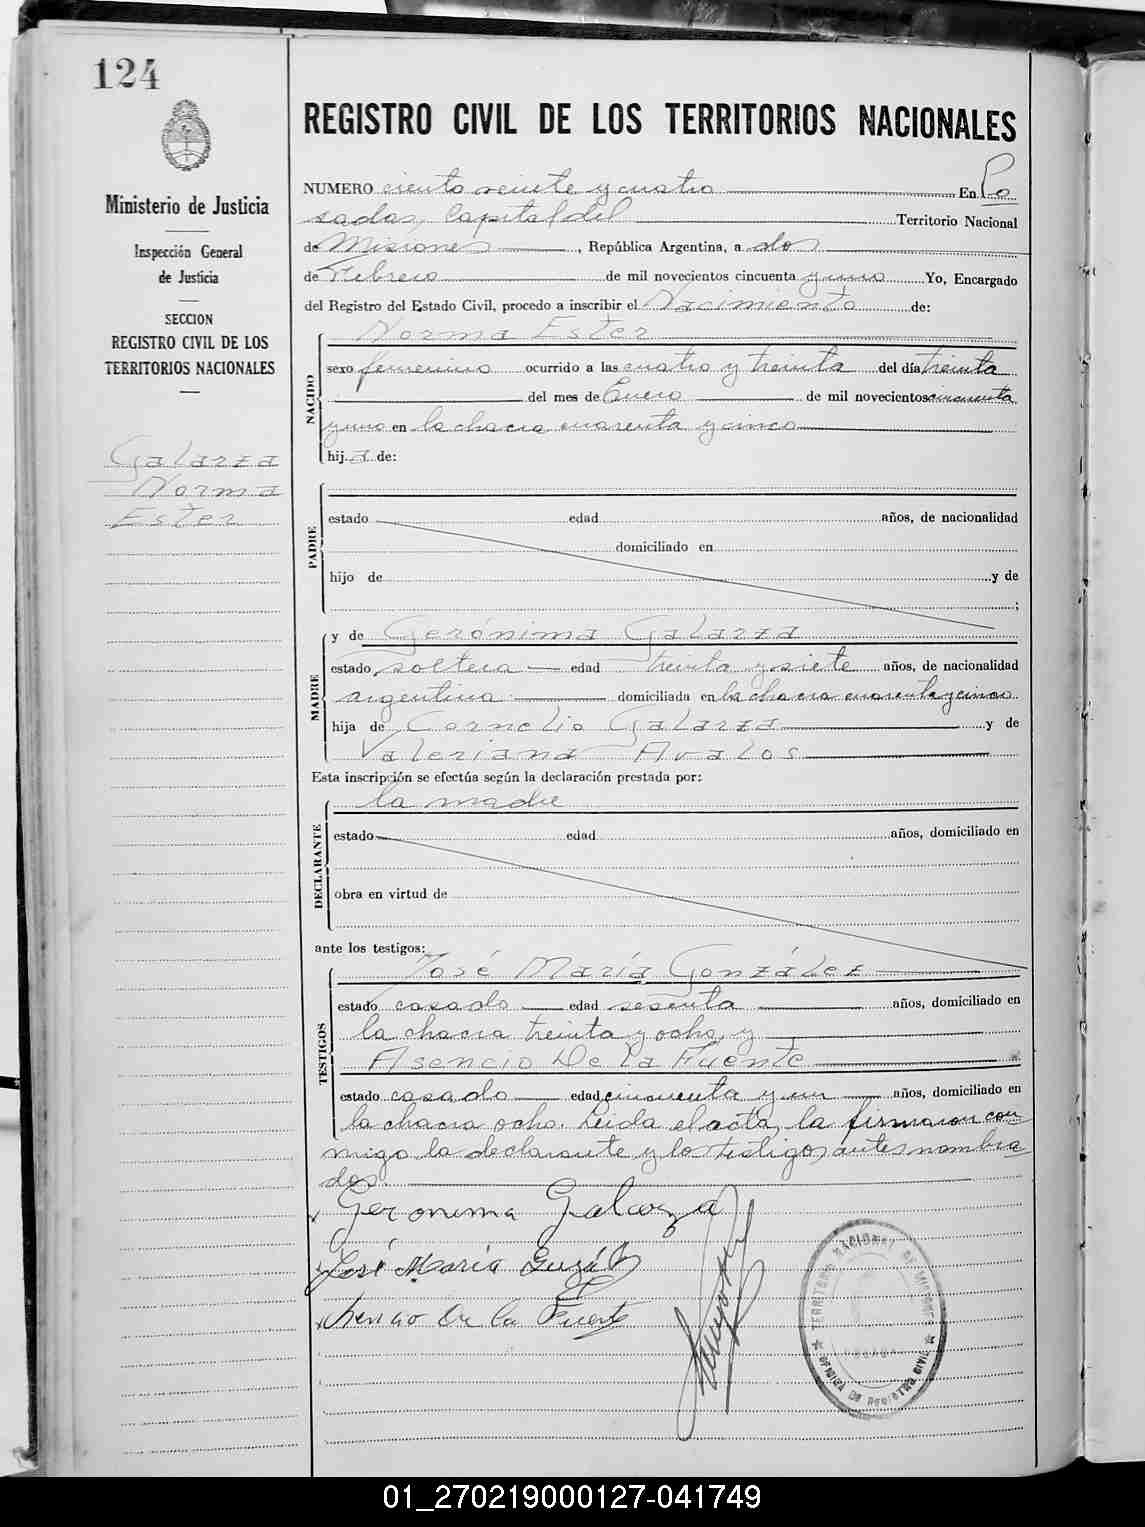 124
Ministerio de Justicia
Inspección General
de Justicia
SECCION
REGISTRO CIVIL DE LOS
TERRITORIOS NACIONALES
Galarza
Norma
Ester
REGISTRO CIVIL DE LOS TERRITORIOS NACIONALES
NUMERO ciento veinte y cuatro En Po
sadas, Capital del Territorio Nacional
de Misiones, República Argentina, a dos
de Febrero de mil novecientos cincuenta y uno Yo, Encargado
del Registro del Estado Civil, procedo a inscribir el Nacimiento de:
NACIDO
Norma Ester
sexo femenino ocurrido a las cuatro y treinta del día treinta
del mes de Enero de mil novecientos cincuenta
y uno en la chacra cuarenta y cinco
hija de:
PADRE
estado edad años, de nacionalidad
domiciliado en
hijo de y de
;
MADRE
y de Gerónima Galarza
estado soltera edad treinta y siete años, de nacionalidad
argentina domiciliada en la chacra cuarenta y cinco
hija de Cornelio Galarza y de
Valeriana Avalos
Esta inscripción se efectúa según la declaración prestada por:
DECLARANTE
la madre
estado edad años, domiciliado en
obra en virtud de
ante los testigos:
TESTIGOS
José María González
estado casado edad sesenta años, domiciliado en
la chacra treinta y ocho, y
Asencio De la Fuente
estado casado edad cincuenta y un años, domiciliado en
la chacra ocho. Leida el acta, la firmaron con
migo la declarante y los testigos antes nombra
dos.
Geronima Galarza
José María
De la Fuente
TERRITORIO NACIONAL DE MISIONES
OFICINA DE REGISTRO CIVIL
01_270219000127-041749